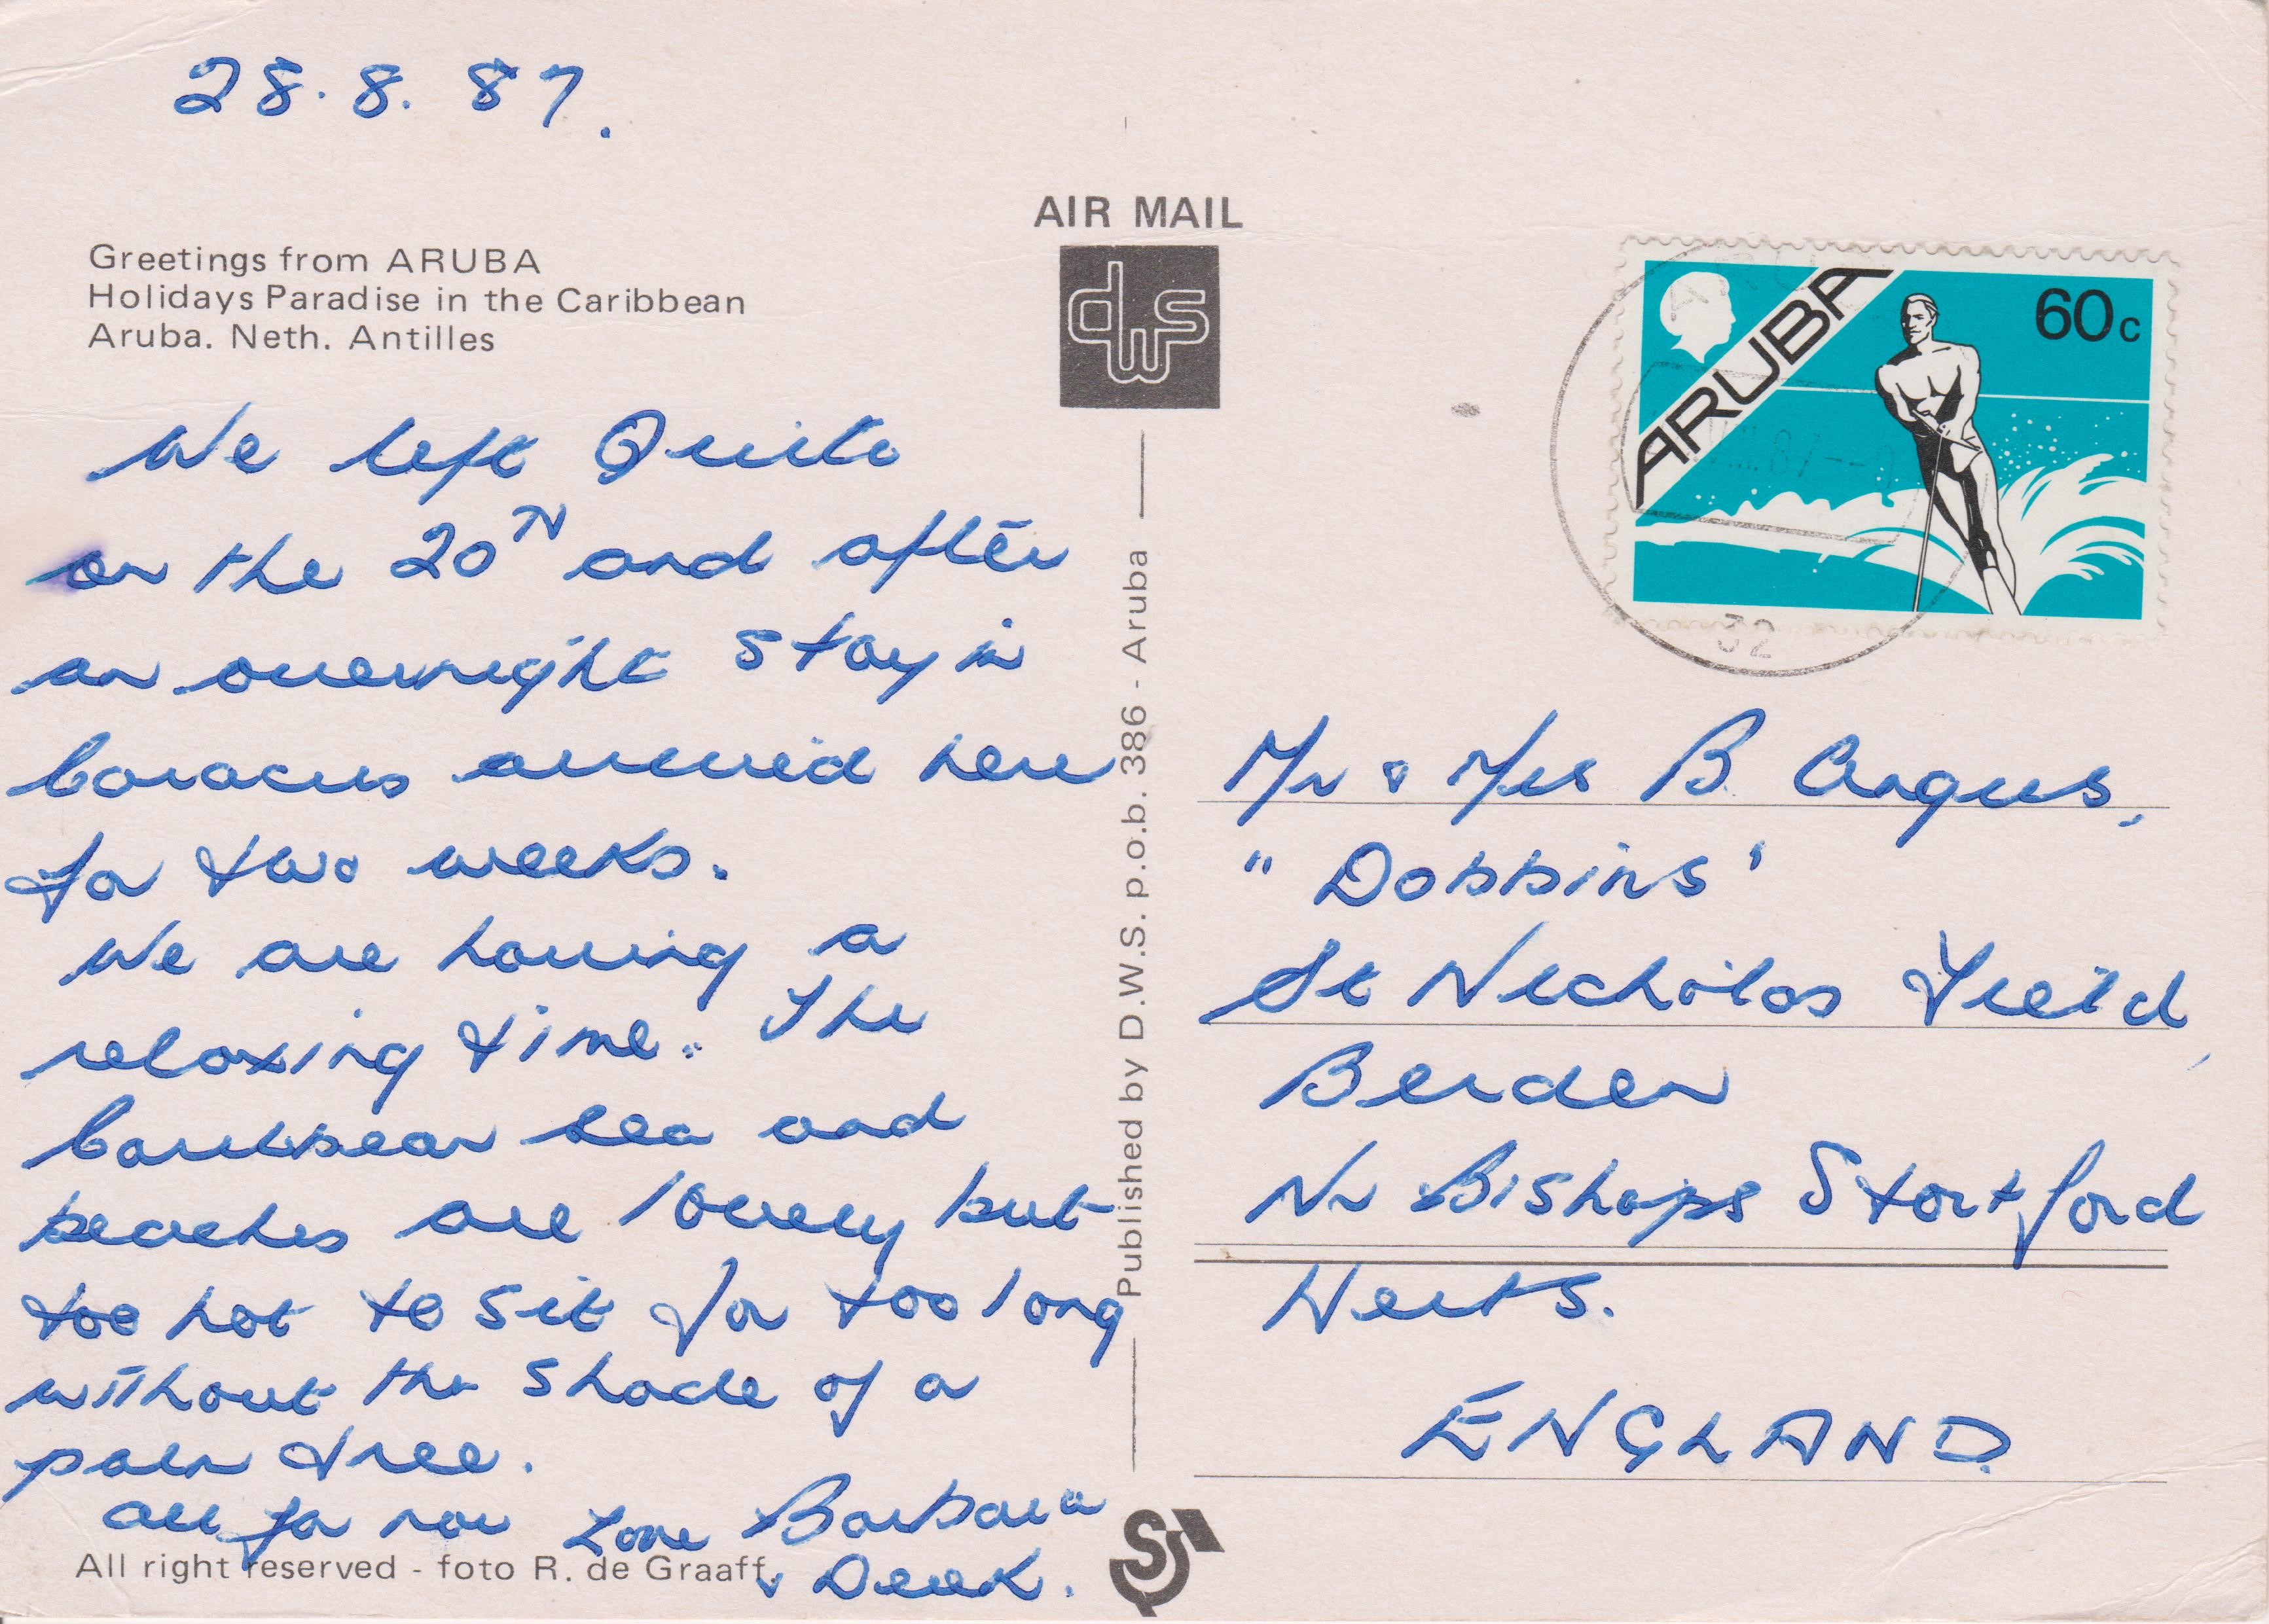 28.8.87.
Greetings from ARUBA
Holidays Paradise in the Caribbean
Aruba. Neth. Antilles
We left Quito
on the 20TH and after
an overnight stay in
Caracus arrived here
for two weeks.
We are having a
relaxing time. The
Caribbean sea and
beaches are lovely but
too hot to sit for too long
without the shade of a
palm tree.
All for now Love Barbara
& Derek.
All right reserved - foto R. de Graaff.
AIR MAIL
dws
Published by D.W.S. p.o.b. 386 - Aruba
ARUBA
60c
32
Mr & Mrs B Angus,
"Dobbins'
St Nicholas Field,
Berden
Nr Bishops Stortford
Herts.
ENGLAND